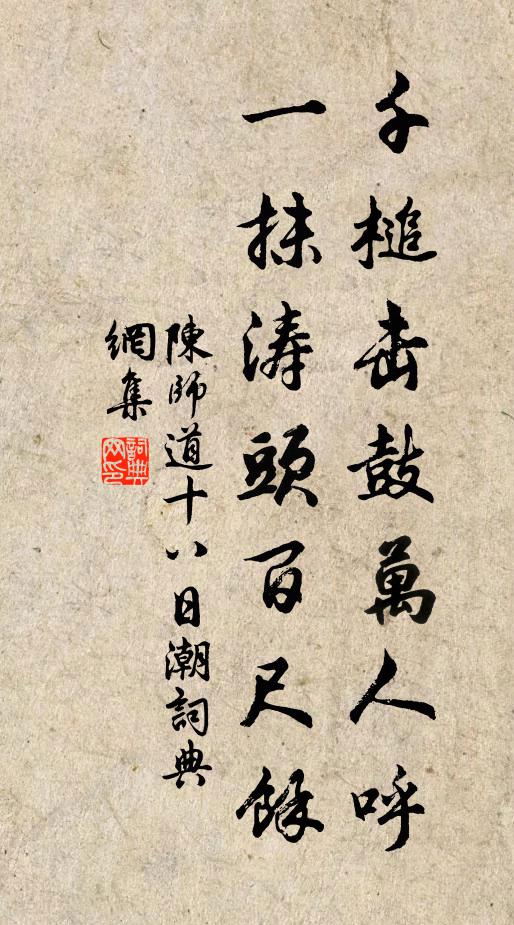 千槌击鼓萬人呼
一抹涛頭百尺餘
陳師道十八日潮詞典
網集
詞典
网印